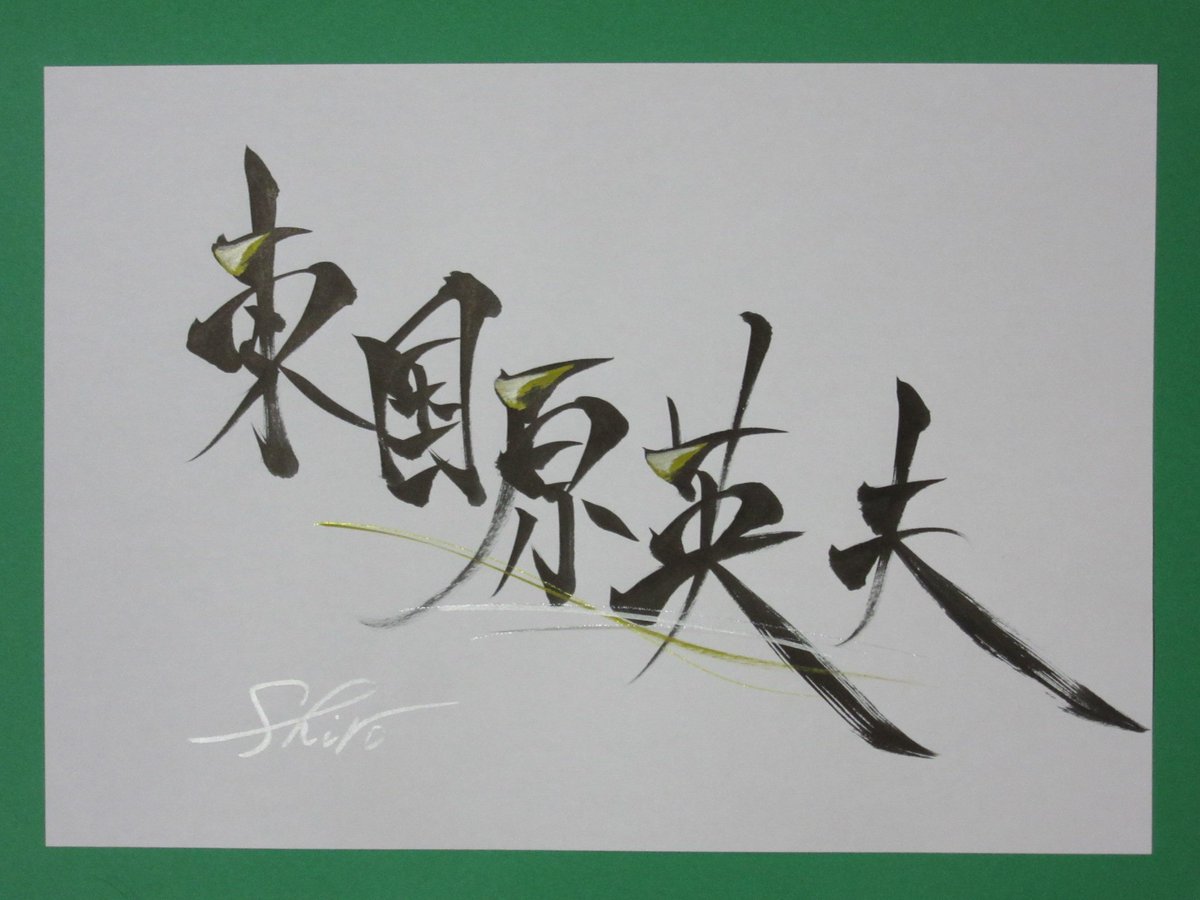 東国原英夫
Shiro